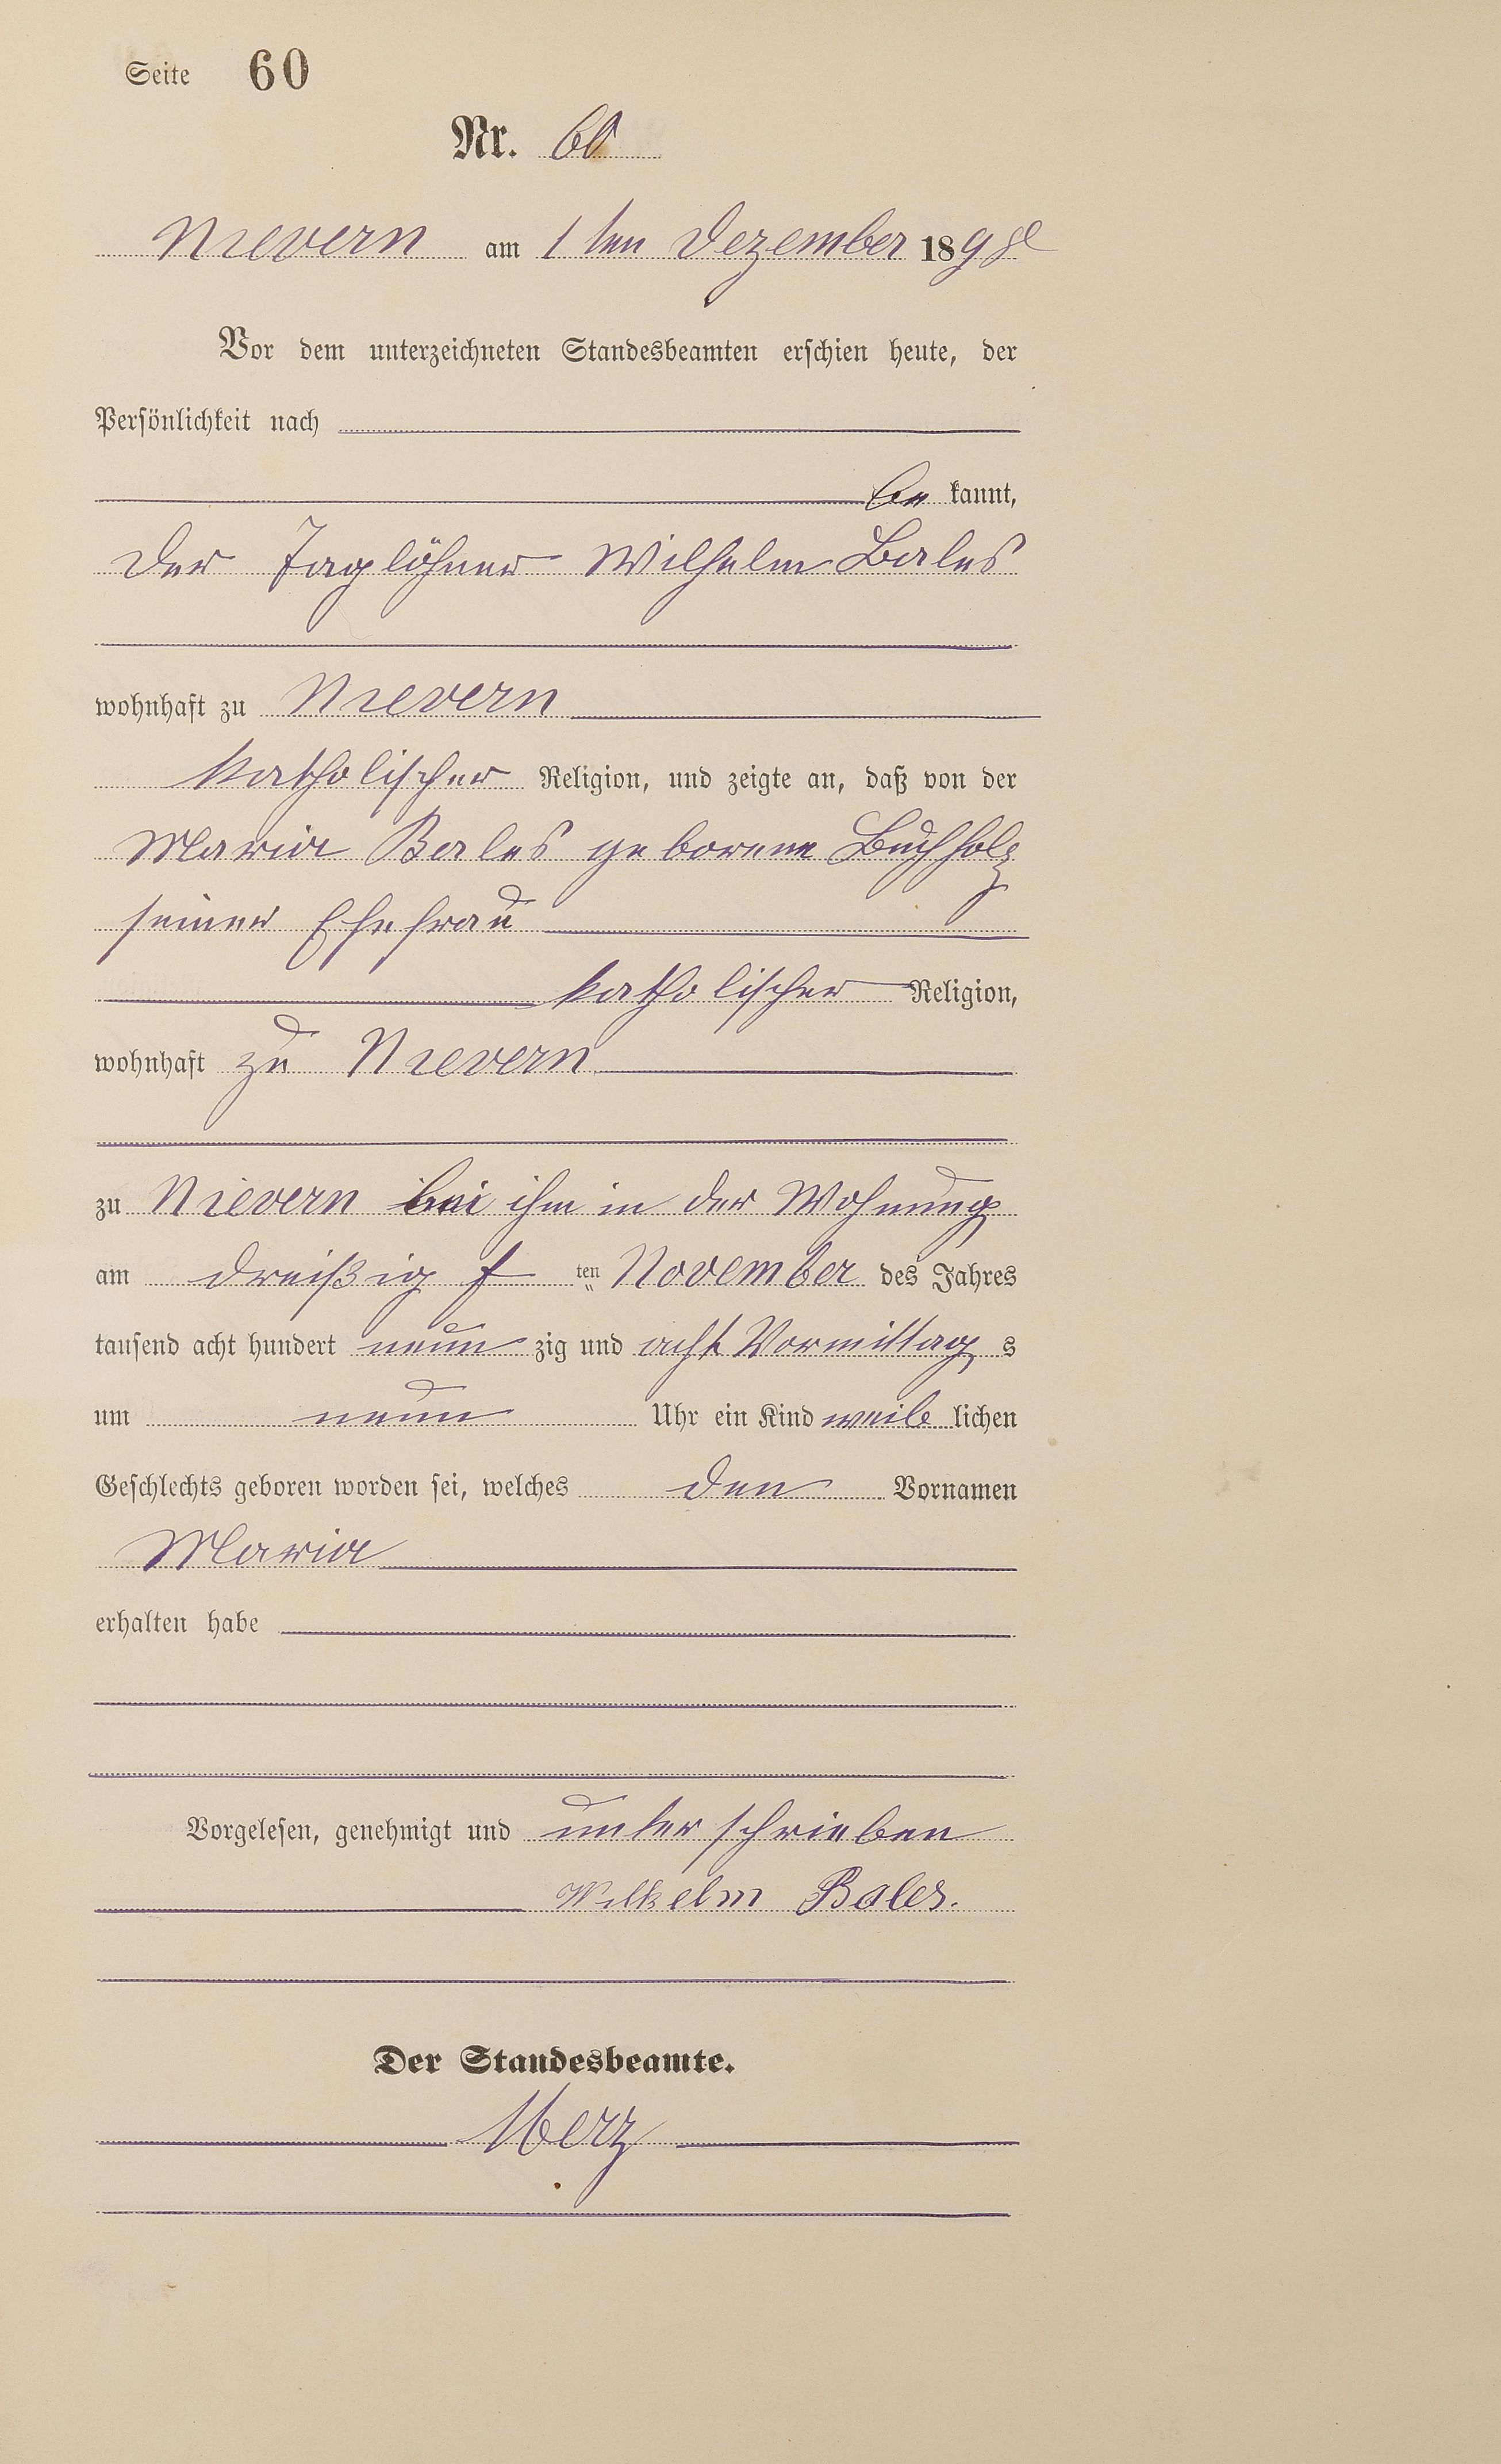 Seite 60
Nr. 60
Nievern am 1ten Dezember 1898
Vor dem unterzeichneten Standesbeamten erschien heute, der
Persönlichkeit nach
be kannt,
der Taglöhner Wilhelm Bales
wohnhaft zu Nievern
katholischer Religion, und zeigte an, daß von der
Maria Bales geborene Buchholz
seiner Ehefrau
katholischer Religion,
wohnhaft zu Nievern
zu Nievern bei ihm in der Wohnung
am dreißig s ten November des Jahres
tausend acht hundert neun zig und acht Vormittag s
um neun Uhr ein Kind weib lichen
Geschlechts geboren worden sei, welches den Vornamen
Maria
erhalten habe
Vorgelesen, genehmigt und unterschrieben
Wilhelm Bales.
Der Standesbeamte.
Merz